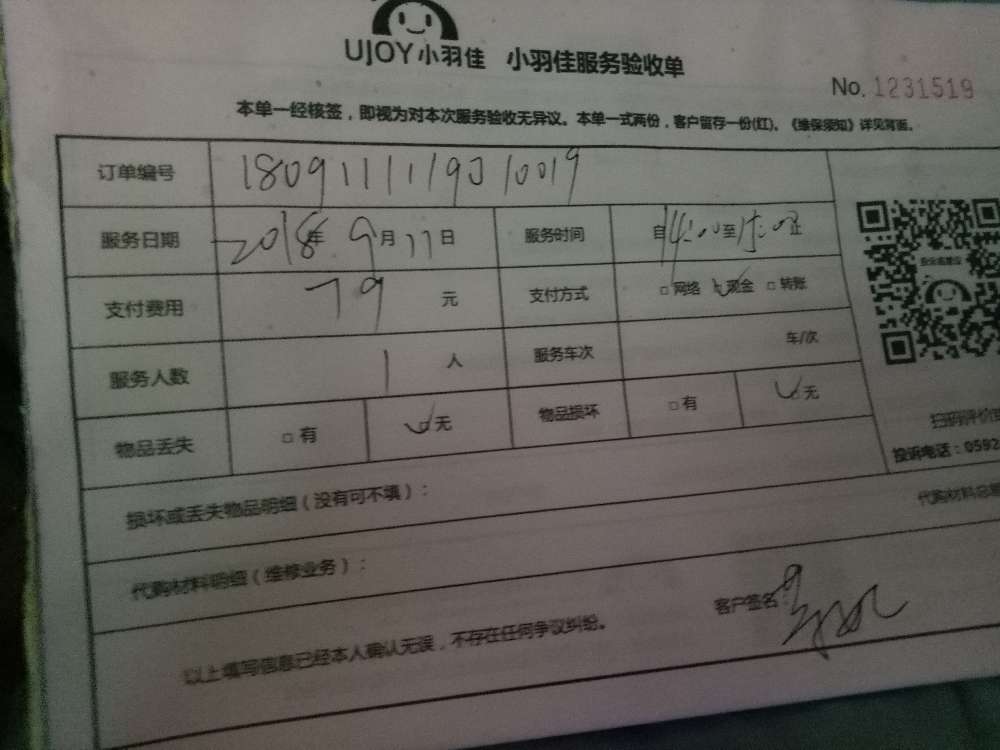 UJOY小羽佳 小羽佳服务验收单
No. 1231519
本单一经核签，即视为对本次服务验收无异议。本单一式两份，客户留存一份(红)。《维保须知》详见背面。
订单编号
服务日期 2018年 9月 11日 服务时间 自14:00至15:00止
支付费用 79 元 支付方式 □网络 现金 □转账
服务人数 1 人 服务车次 车/次
物品丢失 □有 □无 物品损坏 □有 无
扫码评价
投诉电话：0592
损坏或丢失物品明细（没有可不填）：
代购材料总
代购材料明细（维修业务）：
客户签名：
以上填写信息已经本人确认无误，不存在任何争议纠纷。